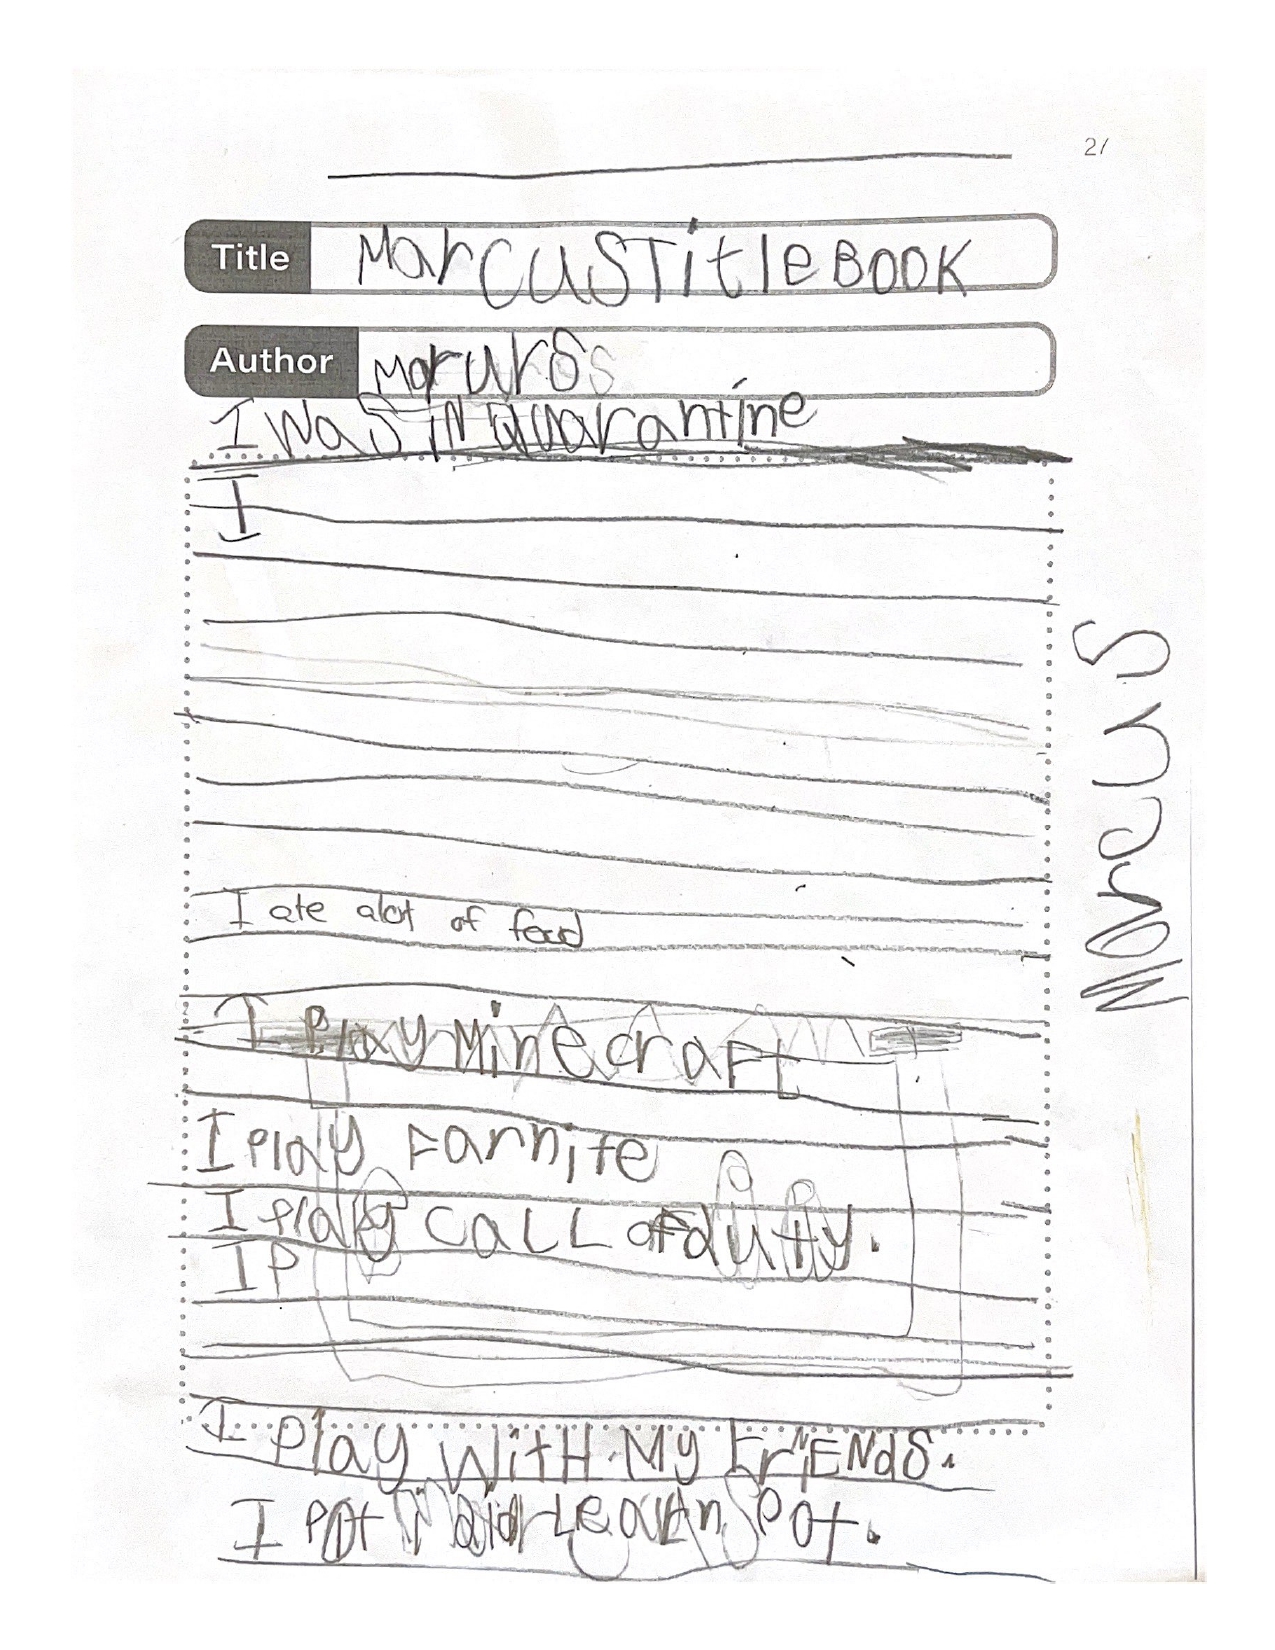 21
Title Marcus Title BOOK
Author
I was in quarantine
I
I ate alot of food
I Play Minecraft
I Play Farnite
I Play CaLL of duty.
I P
I Play With My FriENds.
I
Marcus